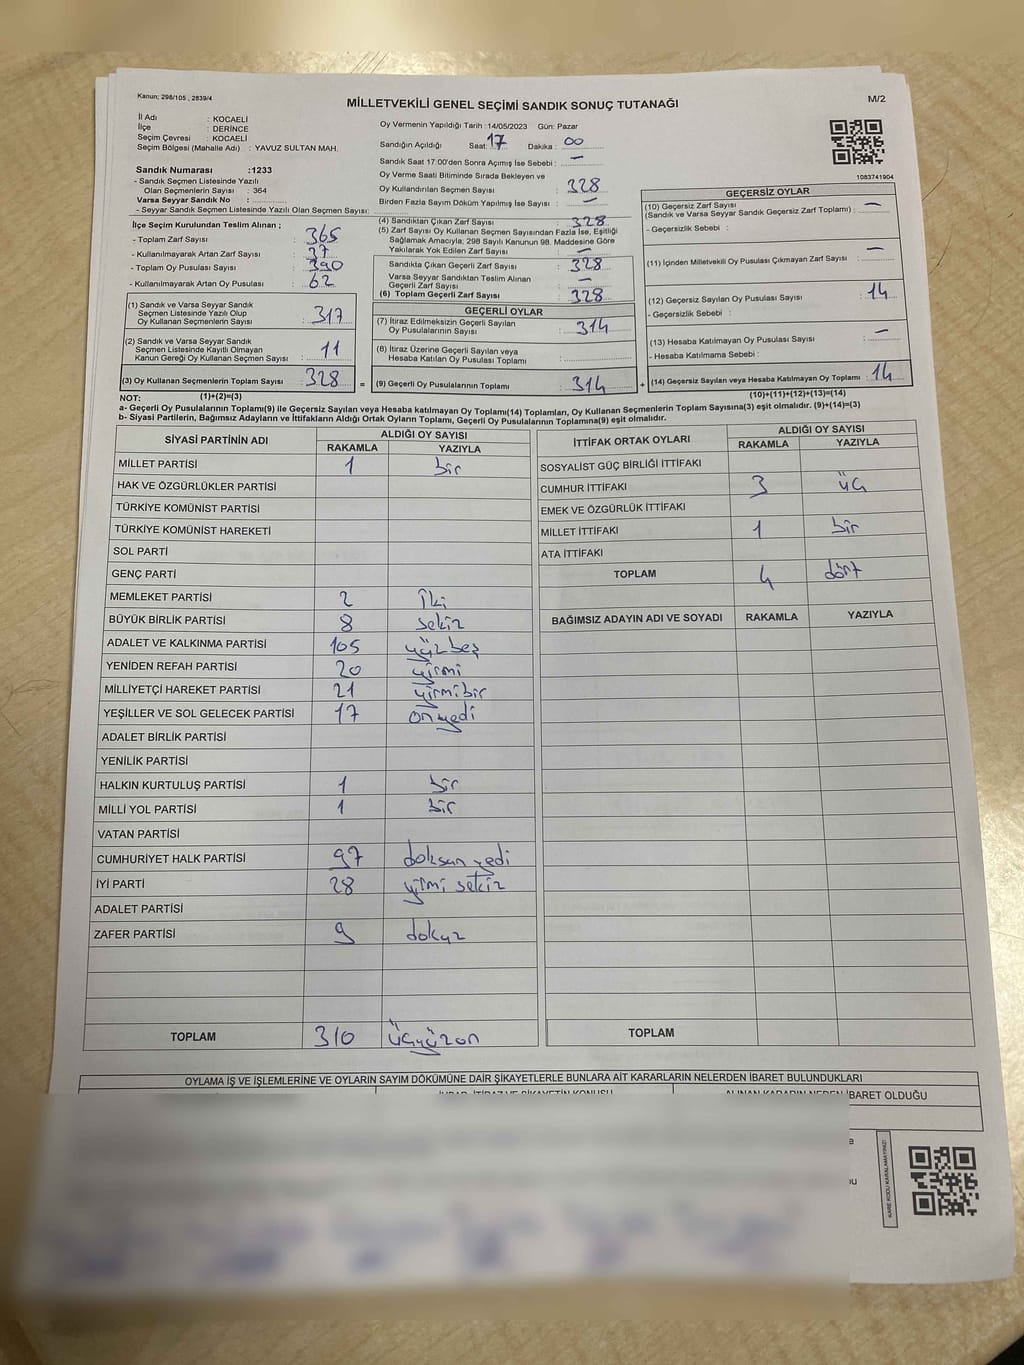 Kanun; 298/105 , 2839/4
MİLLETVEKİLİ GENEL SEÇİMİ SANDIK SONUÇ TUTANAĞI
M/2
İl Adı : KOCAELİ
İlçe : DERİNCE
Seçim Çevresi : KOCAELİ
Seçim Bölgesi (Mahalle Adı) : YAVUZ SULTAN MAH.
Sandık Numarası :1233
- Sandık Seçmen Listesinde Yazılı
Olan Seçmenlerin Sayısı : 364
Varsa Seyyar Sandık No :
- Seyyar Sandık Seçmen Listesinde Yazılı Olan Seçmen Sayısı:
İlçe Seçim Kurulundan Teslim Alınan ;
- Toplam Zarf Sayısı : 365
- Kullanılmayarak Artan Zarf Sayısı : 37
- Toplam Oy Pusulası Sayısı : 390
- Kullanılmayarak Artan Oy Pusulası : 62
(1) Sandık ve Varsa Seyyar Sandık
Seçmen Listesinde Yazılı Olup
Oy Kullanan Seçmenlerin Sayısı : 317
(2) Sandık ve Varsa Seyyar Sandık
Seçmen Listesinde Kayıtlı Olmayan
Kanun Gereği Oy Kullanan Seçmen Sayısı : 11
(3) Oy Kullanan Seçmenlerin Toplam Sayısı : 328
Oy Vermenin Yapıldığı Tarih :14/05/2023 Gün: Pazar
Sandığın Açıldığı Saat: 17 Dakika : 00
Sandık Saat 17.00'den Sonra Açımış İse Sebebi : —
Oy Verme Saati Bitiminde Sırada Bekleyen ve
Oy Kullandırılan Seçmen Sayısı : 328
Birden Fazla Sayım Döküm Yapılmış İse Sayısı : —
(4) Sandıktan Çıkan Zarf Sayısı : 328
(5) Zarf Sayısı Oy Kullanan Seçmen Sayısından Fazla İse, Eşitliği
Sağlamak Amacıyla; 298 Sayılı Kanunun 98. Maddesine Göre
Yakılarak Yok Edilen Zarf Sayısı : —
Sandıkta Çıkan Geçerli Zarf Sayısı : 328
Varsa Seyyar Sandıktan Teslim Alınan
Geçerli Zarf Sayısı : —
(6) Toplam Geçerli Zarf Sayısı : 328
GEÇERLİ OYLAR
(7) İtiraz Edilmeksizin Geçerli Sayılan
Oy Pusulalarının Sayısı : 314
(8) İtiraz Üzerine Geçerli Sayılan veya
Hesaba Katılan Oy Pusulası Toplamı :
= (9) Geçerli Oy Pusulalarının Toplamı : 314
1083741904
GEÇERSİZ OYLAR
(10) Geçersiz Zarf Sayısı
(Sandık ve Varsa Seyyar Sandık Geçersiz Zarf Toplamı) : —
- Geçersizlik Sebebi :
(11) İçinden Milletvekili Oy Pusulası Çıkmayan Zarf Sayısı : —
(12) Geçersiz Sayılan Oy Pusulası Sayısı : 14
- Geçersizlik Sebebi :
(13) Hesaba Katılmayan Oy Pusulası Sayısı : —
- Hesaba Katılmama Sebebi :
+ (14) Geçersiz Sayılan veya Hesaba Katılmayan Oy Toplamı : 14
NOT: (1)+(2)=(3) (10)+(11)+(12)+(13)=(14)
a- Geçerli Oy Pusulalarının Toplamı(9) ile Geçersiz Sayılan veya Hesaba katılmayan Oy Toplamı(14) Toplamları, Oy Kullanan Seçmenlerin Toplam Sayısına(3) eşit olmalıdır. (9)+(14)=(3)
b- Siyasi Partilerin, Bağımsız Adayların ve İttifakların Aldığı Ortak Oyların Toplamı, Geçerli Oy Pusulalarının Toplamına(9) eşit olmalıdır.
SİYASİ PARTİNİN ADI ALDIĞI OY SAYISI
RAKAMLA YAZIYLA
MİLLET PARTİSİ 1 bir
HAK VE ÖZGÜRLÜKLER PARTİSİ
TÜRKİYE KOMÜNİST PARTİSİ
TÜRKİYE KOMÜNİST HAREKETİ
SOL PARTİ
GENÇ PARTİ
MEMLEKET PARTİSİ 2 İki
BÜYÜK BİRLİK PARTİSİ 8 sekiz
ADALET VE KALKINMA PARTİSİ 105 yüzbeş
YENİDEN REFAH PARTİSİ 20 yirmi
MİLLİYETÇİ HAREKET PARTİSİ 21 yirmibir
YEŞİLLER VE SOL GELECEK PARTİSİ 17 onyedi
ADALET BİRLİK PARTİSİ
YENİLİK PARTİSİ
HALKIN KURTULUŞ PARTİSİ 1 bir
MİLLİ YOL PARTİSİ 1 bir
VATAN PARTİSİ
CUMHURİYET HALK PARTİSİ 97 doksan yedi
İYİ PARTİ 28 yirmi sekiz
ADALET PARTİSİ
ZAFER PARTİSİ 9 dokuz
TOPLAM 310 üçyüzon
İTTİFAK ORTAK OYLARI ALDIĞI OY SAYISI
RAKAMLA YAZIYLA
SOSYALİST GÜÇ BİRLİĞİ İTTİFAKI
CUMHUR İTTİFAKI 3 üç
EMEK VE ÖZGÜRLÜK İTTİFAKI
MİLLET İTTİFAKI 1 bir
ATA İTTİFAKI
TOPLAM 4 dört
BAĞIMSIZ ADAYIN ADI VE SOYADI RAKAMLA YAZIYLA
TOPLAM
OYLAMA İŞ VE İŞLEMLERİNE VE OYLARIN SAYIM DÖKÜMÜNE DAİR ŞİKAYETLERLE BUNLARA AİT KARARLARIN NELERDEN İBARET BULUNDUKLARI
ALINAN KARARIN NEDEN İBARET OLDUĞU
KARE KODU KARALAMAYINIZ!